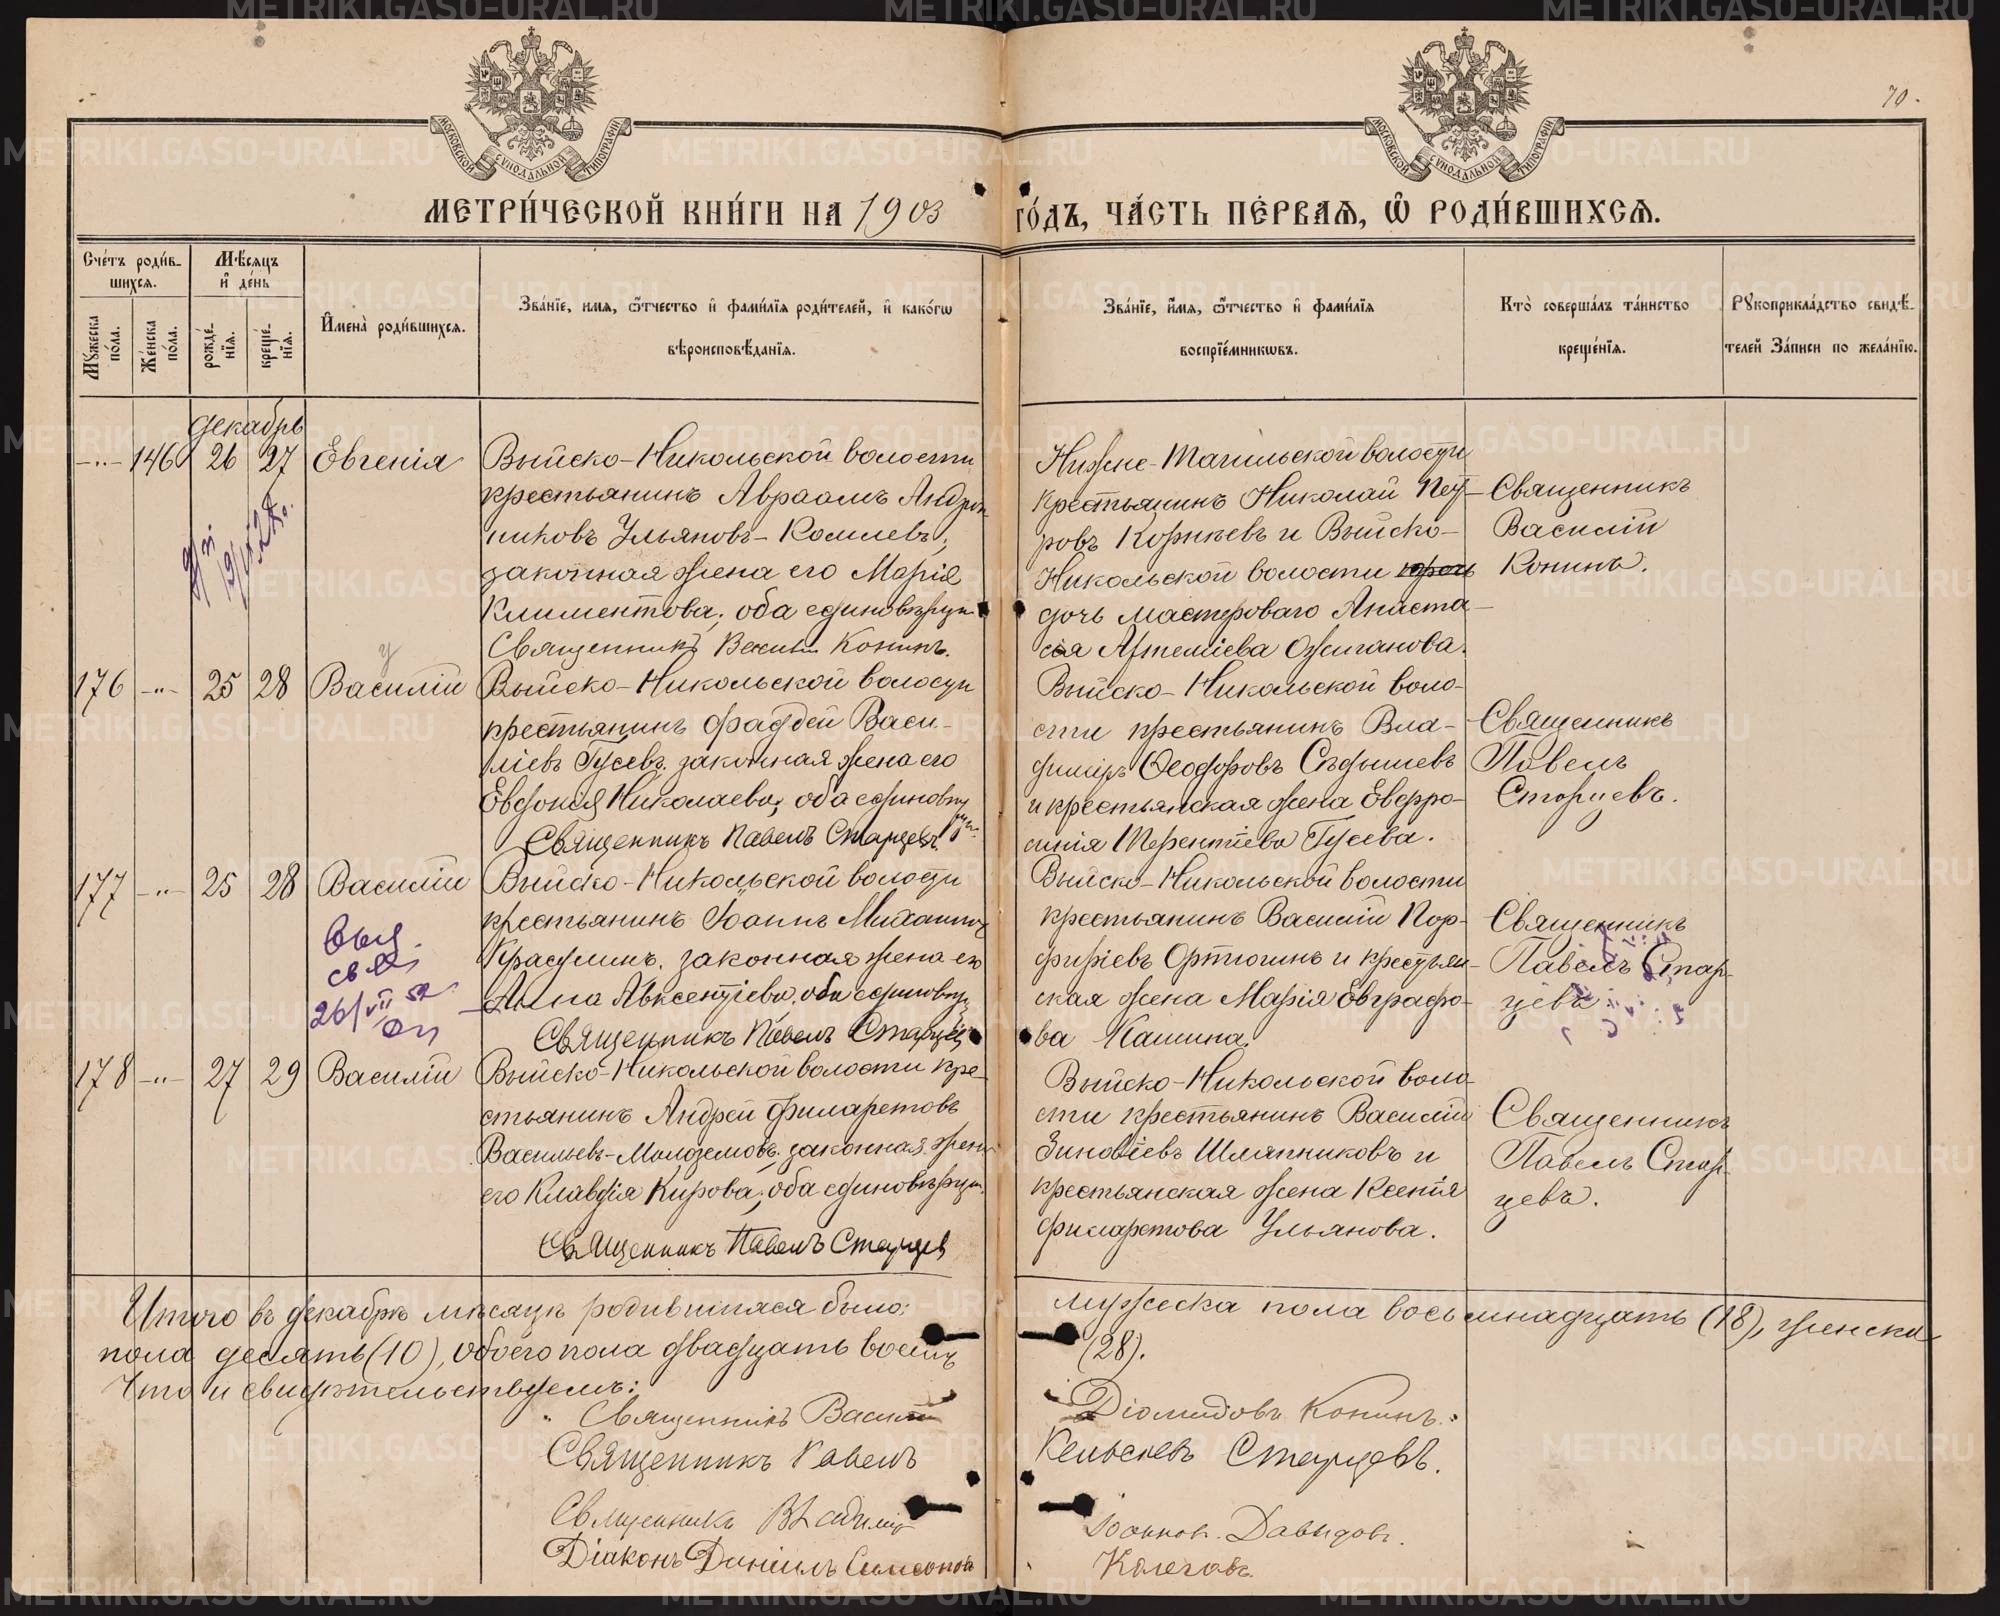 70.
МОСКОВСКОЙ СУНОДАЛЬНОЙ ТИПОГРАФІИ
МОСКОВСКОЙ СУНОДАЛЬНОЙ ТИПОГРАФІИ
МЕТРИ́ЧЕСКОЙ КНИ́ГИ НА 1903 ГО́ДЪ, ЧА́СТЬ ПЕ́РВАѦ, Ѡ҆ РОДИ́ВШИХСѦ.
Сче́тъ роди́в-
шихсѧ.
Мꙋжеска по́ла.
Же́нска по́ла.
Мѣ́сѧцъ
и҆ де́нь
рожде́-нїѧ.
креще́-нїѧ.
И҆мена̀ роди́вшихсѧ.
Зва́нїе, имѧ, ѻ҆́тчество и҆ фами́лїѧ роди́телей, и҆ како́гѡ
вѣроисповѣ́данїѧ.
Зва́нїе, и҆́мѧ, ѻ҆́тчество и҆ фами́лїѧ
воспрїе́мникѡвъ.
Кто̀ соверша́лъ та́инство
креще́нїѧ.
Рꙋкоприкла́дство свидѣ́-
телей За́писи по жела́нїю.
декабрь
-"- 146 26 27 Евгенія
Выйско-Никольской волости
крестьянинъ Авраамъ Андрон-
никовъ Ульяновъ-Комлевъ,
законная жена его Марія
Климентова; оба единовѣрцы.
Священникъ Василій Конинъ.
Нижне-Тагильской волости
крестьянинъ Николай Пет-
ровъ Корнѣевъ и Выйско-
Никольской волости
дочь мастероваго Анаста-
сія Артеміева Ожиганова.
Священникъ
Василій
Конинъ.
176 -"- 25 28 Василій
Выйско-Никольской волости
крестьянинъ Фаддей Васи-
ліевъ Гусевъ, законная жена его
Евдокія Николаева; оба единовѣр
цы.
Священникъ Павелъ Старцевъ
Выйско-Никольской воло-
сти крестьянинъ Вла-
диміръ Ѳеодоровъ Сѣдышевъ
и крестьянская жена Евфро-
синія Терентіева Гусева.
Священникъ
Павелъ
Старцевъ.
177 -"- 25 28 Василій
Выд.
св-во
26/VII 52
Выйско-Никольской волости
крестьянинъ Іоаннъ Михаиловъ
Красулинъ, законная жена его
Анна Авксентіева, оба единовѣрцы
Священникъ Павелъ Старцевъ
Выйско-Никольской волости
крестьянинъ Василій Пор-
фиріевъ Ортюгинъ и крестьян-
ская жена Марія Евграфо-
ва Кашина.
Священникъ
Павелъ Стар-
цевъ
178 -"- 27 29 Василій
Выйско-Никольской волости кре-
стьянинъ Андрей Филаретовъ
Васильевъ-Молоземовъ, законная жена
его Клавдія Кирова; оба единовѣрцы.
Священникъ Павелъ Старцевъ
Выйско-Никольской воло-
сти крестьянинъ Василій
Зиновіевъ Шляпниковъ и
крестьянская жена Ксенія
Филаретова Ульянова.
Священникъ
Павелъ Стар-
цевъ.
Итого въ декабрѣ мѣсяцѣ родившихся было: мужеска пола восьмнадцать (18), женска
пола десять (10), обоего пола двадцать восемь (28).
Что и свидѣтельствуемъ:
Священникъ Василій Діомидовъ Конинъ.
Священникъ Павелъ Кельсіевъ Старцевъ.
Священникъ Владиміръ Іоанновъ Давыдовъ.
Діаконъ Даніилъ Симеоновъ Колеговъ.
METRIKI.GASO-URAL.RU